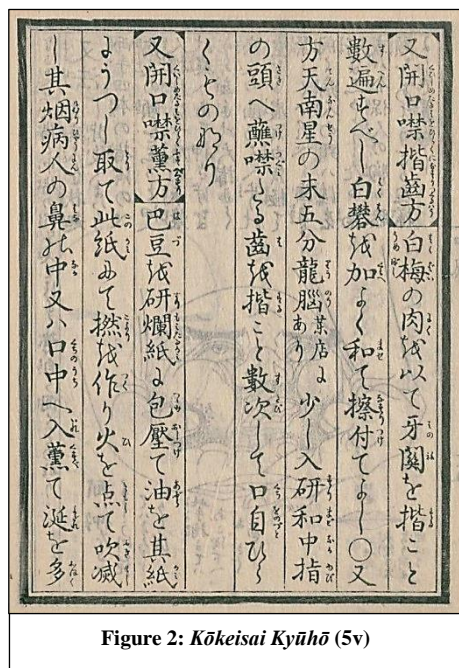 又開口噤揩齒方 白梅の肉を以て牙関を揩こと
數遍すべし白礬を加よく和て擦付てよし〇又
方天南星の末五分龍腦 薬店にあり 少し入研和中指
の頭へ蘸噤たる齒を揩こと數次して口自ひら
くものなり
又開口噤薫方 巴豆を研爛紙に包壓て油を其紙
にうつし取て此紙にて撚を作り火を点て吹滅
し其烟病人の鼻の中又ハ口中へ入薫て涎を多
Figure 2: Kōkeisai Kyūhō (5v)